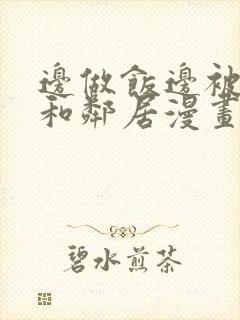 邊做飯邊被
和鄰居漫畫
碧水煎茶